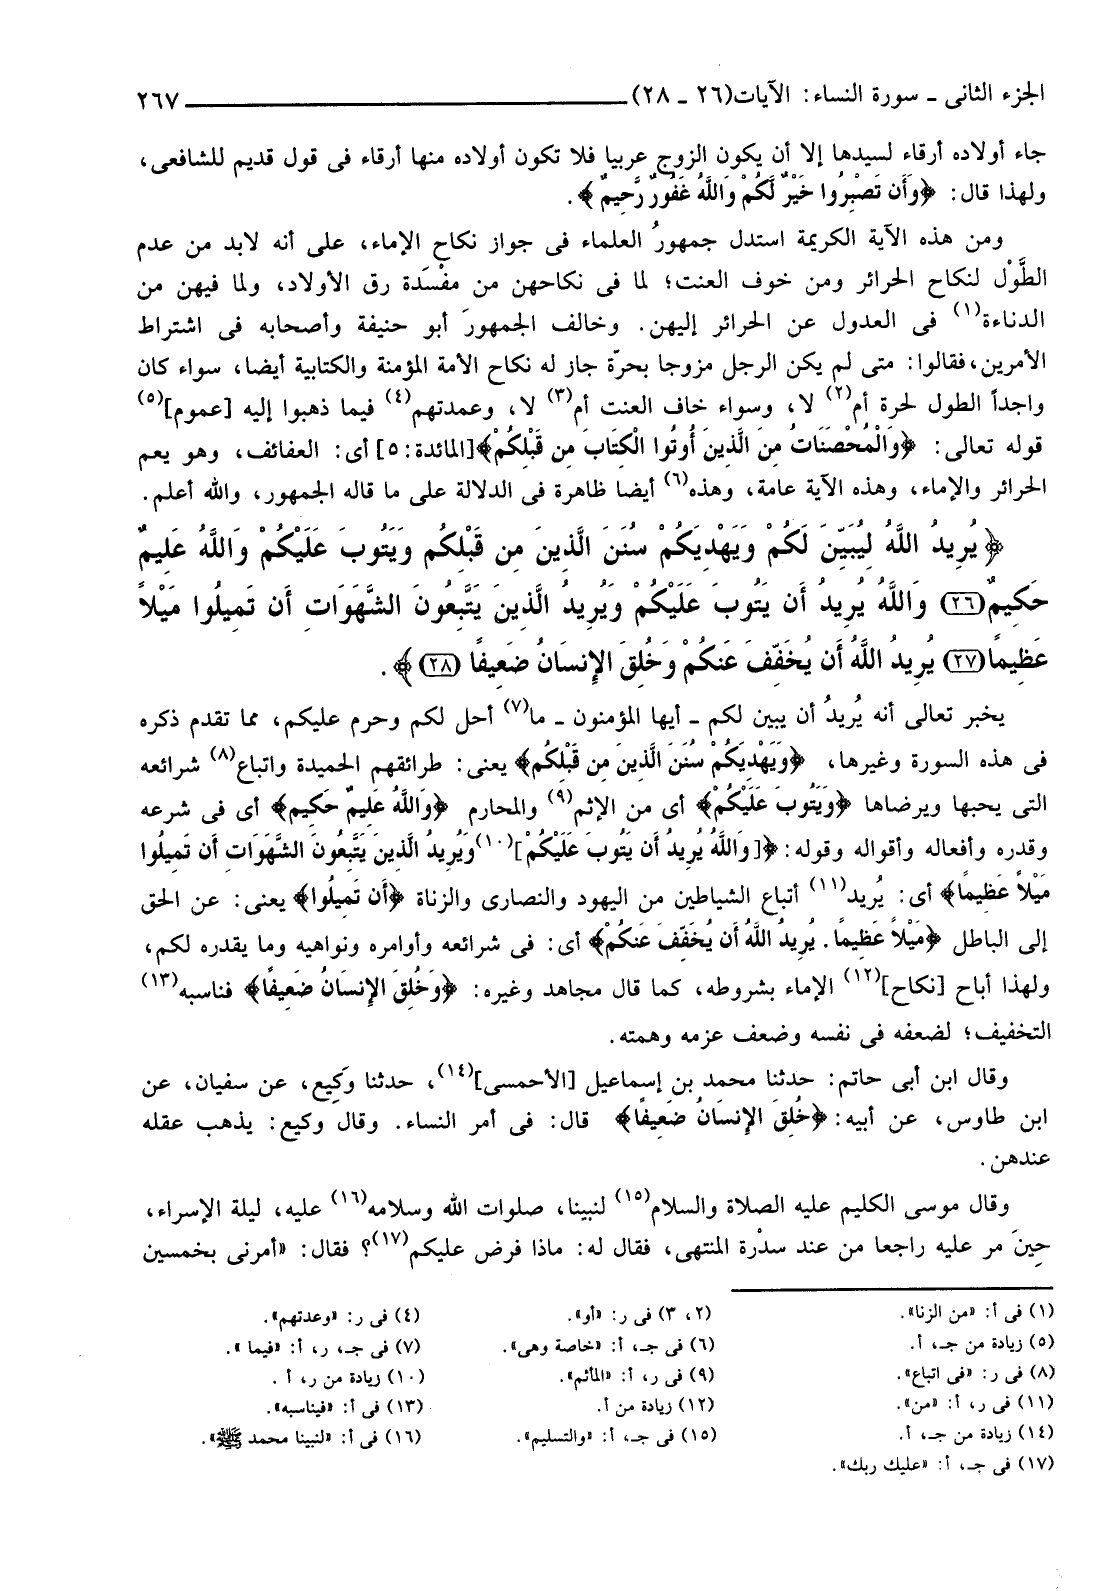 الجزء الثانى ـ سورة النساء: الآيات(٢٦ ـ ٢٨) ٢٦٧
جاء أولاده أرقاء لسيدها إلا أن يكون الزوج عربيا فلا تكون أولاده منها أرقاء فى قول قديم للشافعى،
ولهذا قال: ﴿وَأَن تَصْبِرُوا خَيْرٌ لَّكُمْ وَاللَّهُ غَفُورٌ رَّحِيمٌ﴾.
ومن هذه الآية الكريمة استدل جمهورُ العلماء فى جواز نكاح الإماء، على أنه لابد من عدم
الطَّوْل لنكاح الحرائر ومن خوف العنت؛ لما فى نكاحهن من مفْسَدة رق الأولاد، ولما فيهن من
الدناءة(١) فى العدول عن الحرائر إليهن. وخالف الجمهورَ أبو حنيفة وأصحابه فى اشتراط
الأمرين،فقالوا: متى لم يكن الرجل مزوجا بحرّة جاز له نكاح الأمة المؤمنة والكتابية أيضا، سواء كان
واجداً الطول لحرة أم(٢) لا، وسواء خاف العنت أم(٣) لا، وعمدتهم(٤) فيما ذهبوا إليه [عموم](٥)
قوله تعالى: ﴿وَالْمُحْصَنَاتُ مِنَ الَّذِينَ أُوتُوا الْكِتَابَ مِن قَبْلِكُمْ﴾[المائدة:٥] أى: العفائف، وهو يعم
الحرائر والإماء، وهذه الآية عامة، وهذه(٦) أيضا ظاهرة فى الدلالة على ما قاله الجمهور، والله أعلم.
﴿يُرِيدُ اللَّهُ لِيُبَيِّنَ لَكُمْ وَيَهْدِيَكُمْ سُنَنَ الَّذِينَ مِن قَبْلِكُمْ وَيَتُوبَ عَلَيْكُمْ وَاللَّهُ عَلِيمٌ
حَكِيمٌ(٢٦) وَاللَّهُ يُرِيدُ أَن يَتُوبَ عَلَيْكُمْ وَيُرِيدُ الَّذِينَ يَتَّبِعُونَ الشَّهَوَاتِ أَن تَمِيلُوا مَيْلاً
عَظِيمًا(٢٧) يُرِيدُ اللَّهُ أَن يُخَفِّفَ عَنكُمْ وَخُلِقَ الإِنسَانُ ضَعِيفًا (٢٨)﴾.
يخبر تعالى أنه يُريدُ أن يبين لكم ـ أيها المؤمنون ـ ما(٧) أحل لكم وحرم عليكم، مما تقدم ذكره
فى هذه السورة وغيرها، ﴿وَيَهْدِيَكُمْ سُنَنَ الَّذِينَ مِن قَبْلِكُمْ﴾ يعنى: طرائقهم الحميدة واتباع(٨) شرائعه
التى يحبها ويرضاها ﴿وَيَتُوبَ عَلَيْكُمْ﴾ أى من الإثم(٩) والمحارم ﴿وَاللَّهُ عَلِيمٌ حَكِيم﴾ أى فى شرعه
وقدره وأفعاله وأقواله وقوله: ﴿[وَاللَّهُ يُرِيدُ أَن يَتُوبَ عَلَيْكُمْ](١٠) وَيُرِيدُ الَّذِينَ يَتَّبِعُونَ الشَّهَوَاتِ أَن تَمِيلُوا
مَيْلاً عَظِيمًا﴾ أى: يُريد(١١) أتباع الشياطين من اليهود والنصارى والزناة ﴿أَن تَمِيلُوا﴾ يعنى: عن الحق
إلى الباطل ﴿مَيْلاً عَظِيمًا. يُرِيدُ اللَّهُ أَن يُخَفِّفَ عَنكُمْ﴾ أى: فى شرائعه وأوامره ونواهيه وما يقدره لكم،
ولهذا أباح [نكاح](١٢) الإماء بشروطه، كما قال مجاهد وغيره: ﴿وَخُلِقَ الإِنسَانُ ضَعِيفًا﴾ فناسبه(١٣)
التخفيف؛ لضعفه فى نفسه وضعف عزمه وهمته.
وقال ابن أبى حاتم: حدثنا محمد بن إسماعيل [الأحمسى](١٤)، حدثنا وَكِيع، عن سفيان، عن
ابن طاوس، عن أبيه: ﴿خُلِقَ الإِنسَانُ ضَعِيفًا﴾ قال: فى أمر النساء. وقال وكيع: يذهب عقله
عندهن.
وقال موسى الكليم عليه الصلاة والسلام(١٥) لنبينا، صلوات الله وسلامه(١٦) عليه، ليلة الإسراء،
حِينَ مر عليه راجعا من عند سدْرة المنتهى، فقال له: ماذا فرض عليكم(١٧)؟ فقال: «أمرنى بخمسين
(١) فى أ: «من الزنا». (٢، ٣) فى ر: «أو». (٤) فى ر: «وعدتهم».
(٥) زيادة من جـ، أ. (٦) فى جـ، أ: «خاصة وهى». (٧) فى جـ، ر، أ: «فيما ».
(٨) فى ر: «فى اتباع». (٩) فى ر، أ: «المأثم». (١٠) زيادة من ر، أ .
(١١) فى ر، أ: «من». (١٢) زيادة من أ. (١٣) فى أ: «فيناسبه».
(١٤) زيادة من جـ، أ. (١٥) فى جـ، أ: «والتسليم». (١٦) فى أ: «لنبينا محمد ﷺ».
(١٧) فى جـ، أ: «عليك ربك».